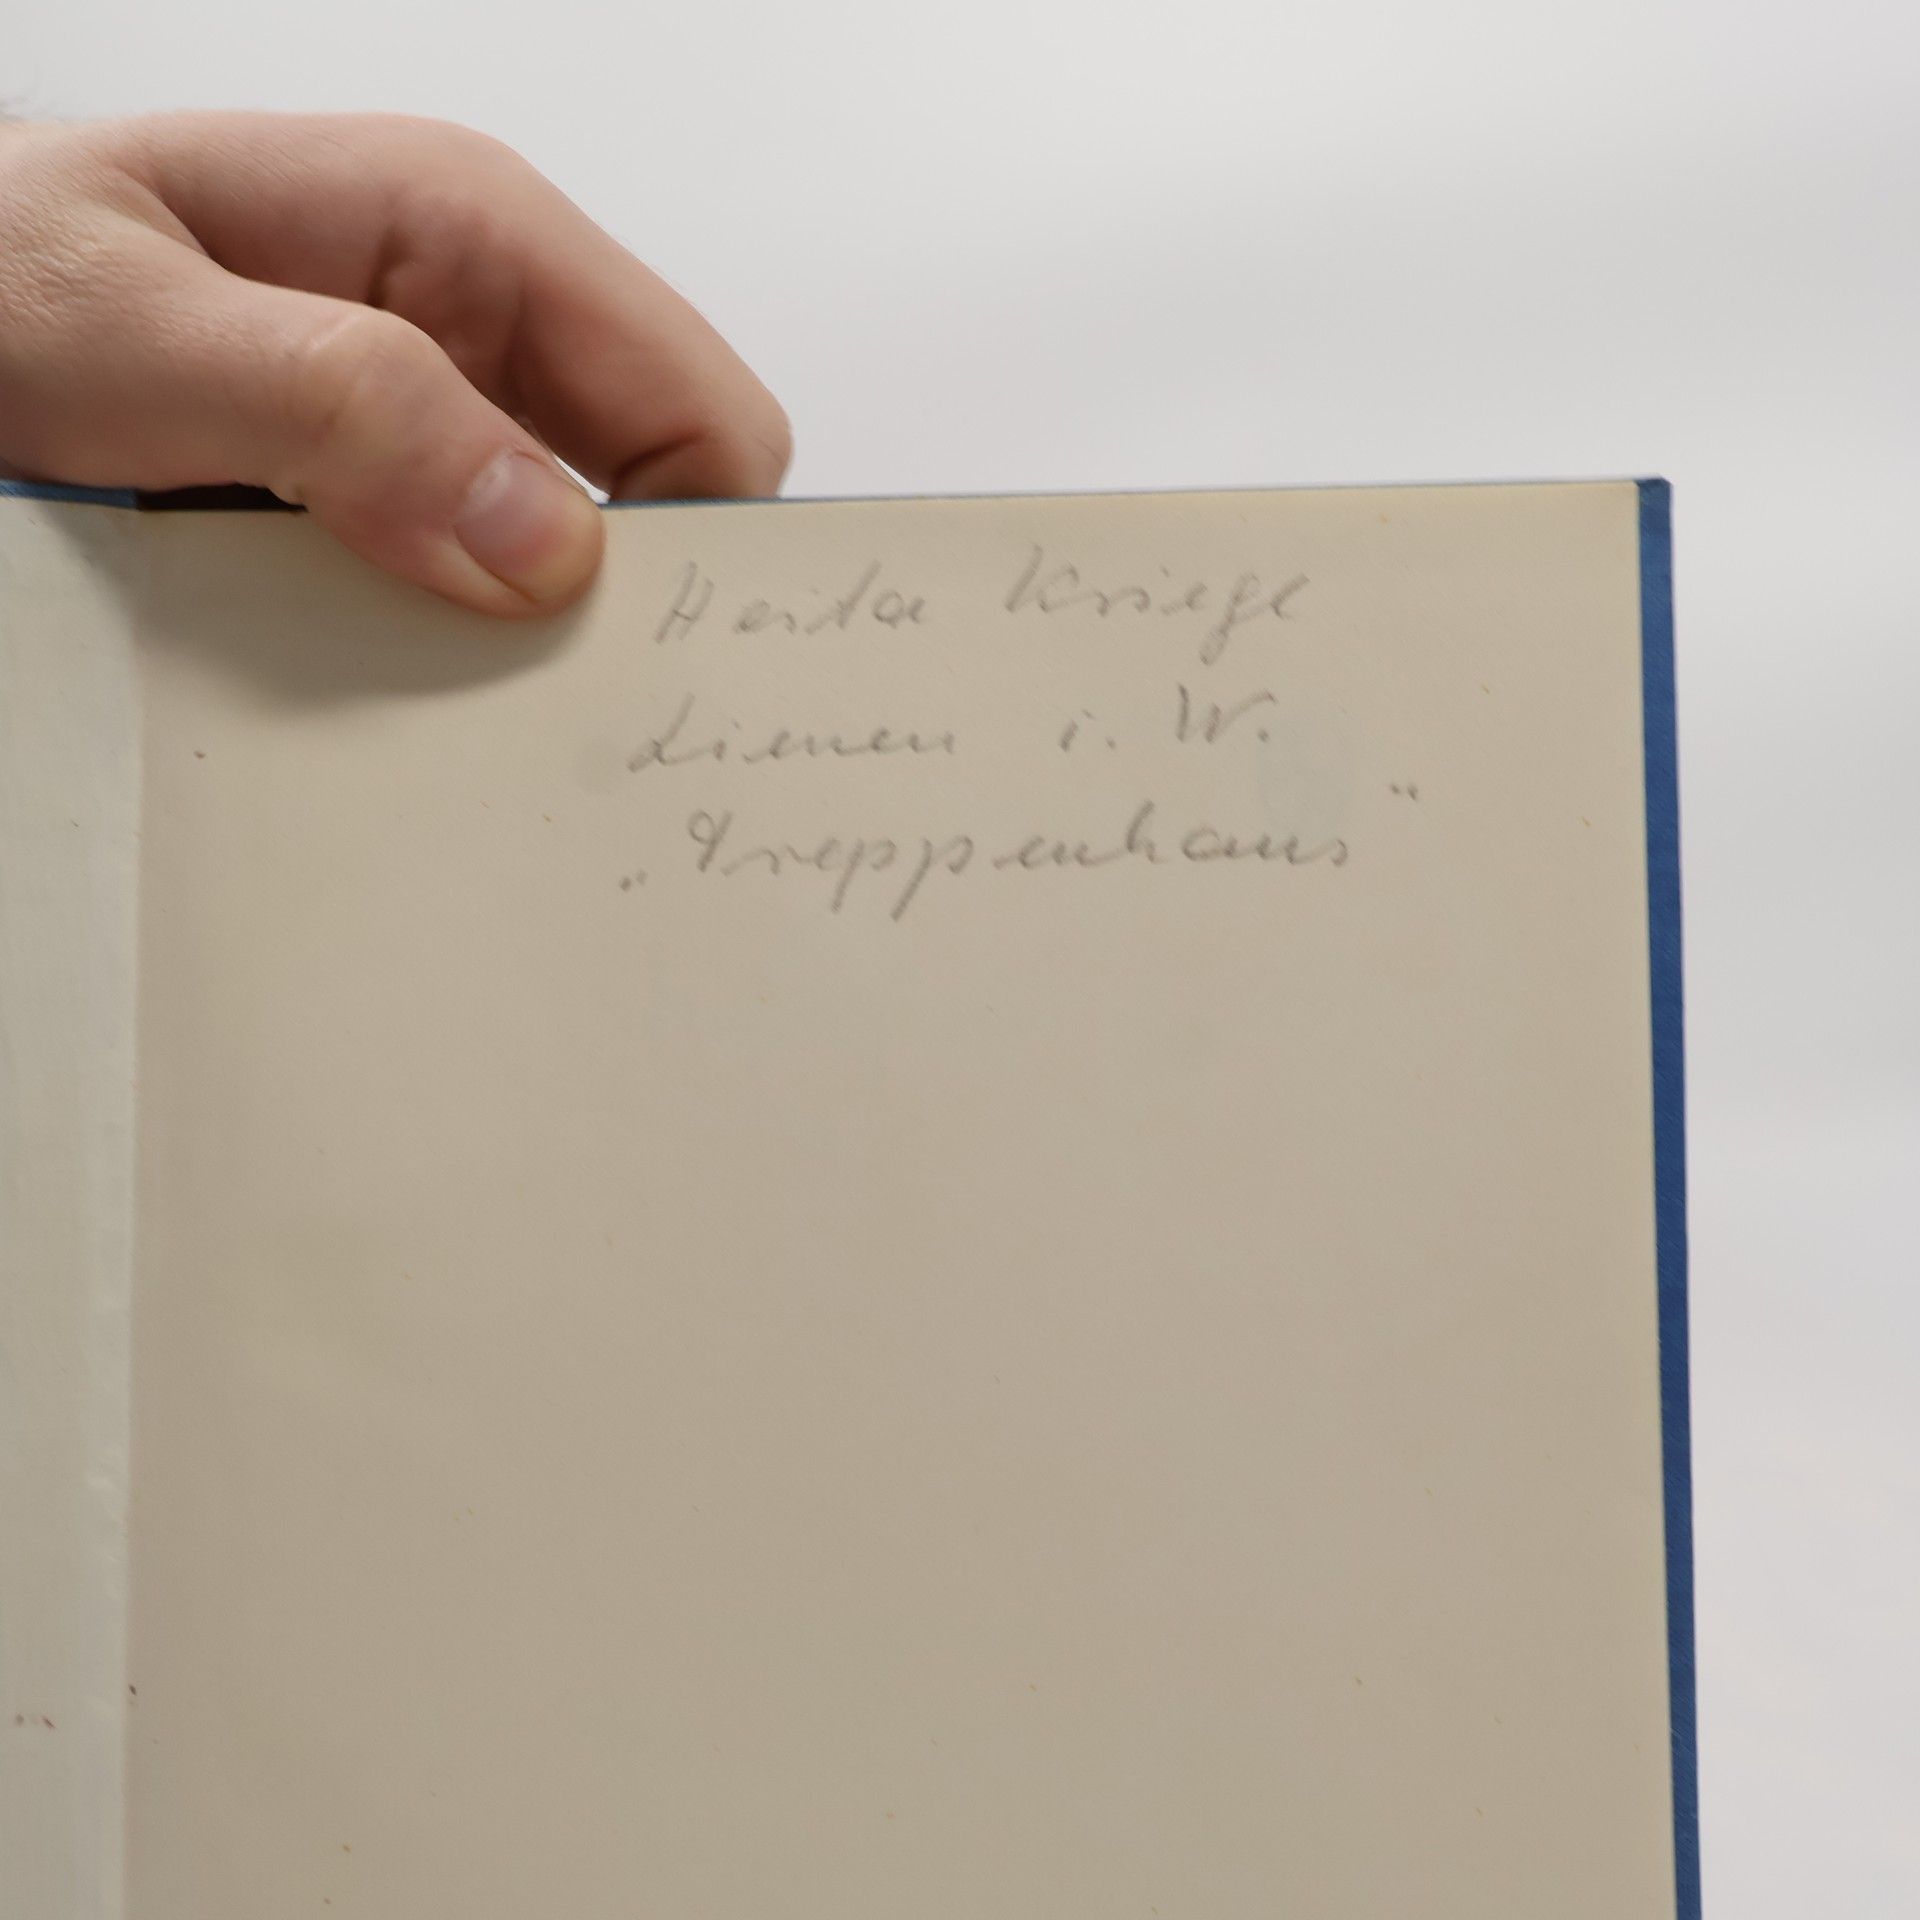 Heita Kriege
Lienen i. W.
„Treppenhaus“